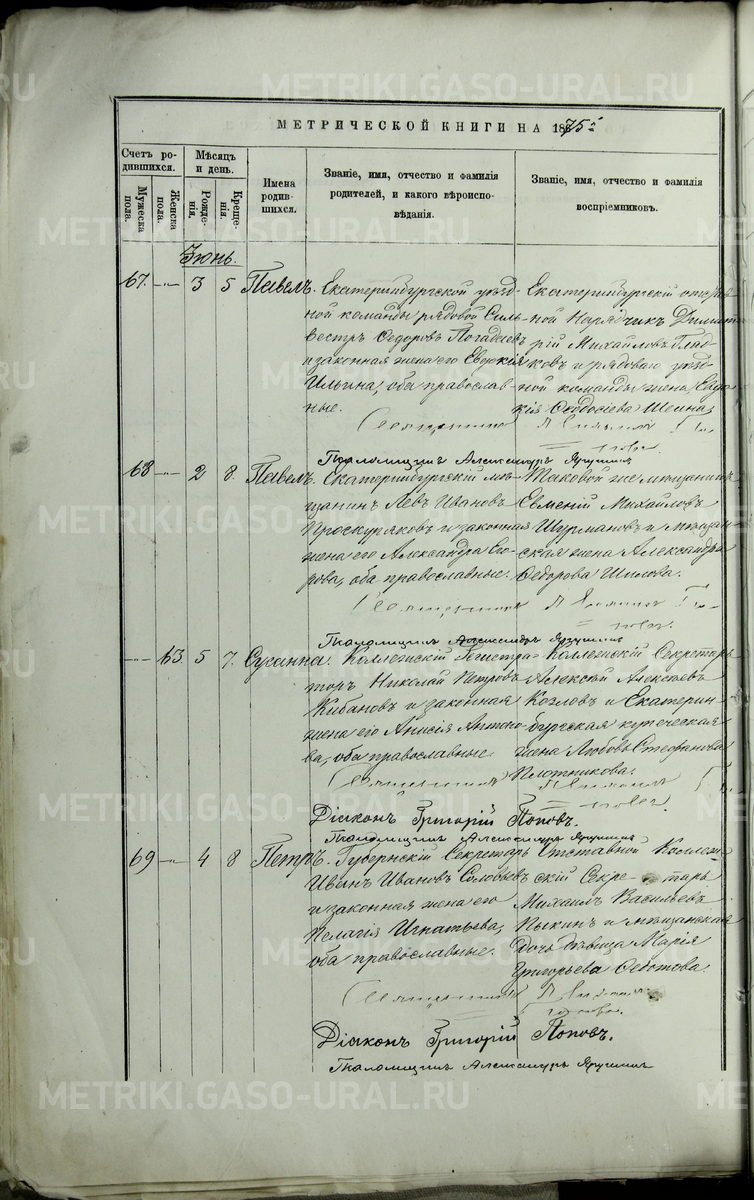 МЕТРИЧЕСКОЙ КНИГИ НА 1875
Счетъ родившихся.
Мужеска пола.
Женска пола.
Мѣсяцъ и день.
Рожденія.
Крещенія.
Имена родившихся.
Званіе, имя, отчество и фамилія родителей, и какого вѣроисповѣданія.
Званіе, имя, отчество и фамилія воспріемниковъ.
Іюнь.
67. 3 5 Павелъ.
Екатеринбургской уѣзд-
ной команды рядовой Силь-
вестръ Ѳедоровъ Погадаевъ
и законная жена его Евдокія
Ильина, оба православ-
ные.
Екатеринбургскій
Нарядчикъ Димит-
рій Михайловъ
и рядоваго уѣзд-
ной команды жена Евдо-
кія Ѳеодосіева Шеина
Священникъ
Псаломщикъ Александръ Яручинъ
68 2 8. Павелъ.
Екатеринбургскій мѣ-
щанинъ Левъ Ивановъ
Проскуряковъ и законная
жена его Александра Его-
рова, оба православные.
Таковой же мѣщанинъ
Евменій Михайловъ
Шурмановъ и мѣщан-
ская жена Александра
Ѳедорова Шилова.
Священникъ
Псаломщикъ Александръ Яручинъ
63. 5 7. Сусанна.
Коллежскій Регистра-
торъ Николай Петровъ
Кибановъ и законная
жена его Анисія Антоно-
ва, оба православные.
Коллежскій Секретарь
Алексѣй Алексѣевъ
Козловъ и Екатерин-
бургская купеческая
жена Любовь Стефанова
Плотникова.
Священникъ
Діаконъ Григорій Поповъ.
Псаломщикъ Александръ Яручинъ
69 4 8 Петръ.
Губернскій Секретарь
Иванъ Ивановъ Соловьевъ
и законная жена его
Пелагія Игнатьева,
оба православные.
Отставной Коллеж-
скій Секретарь
Михаилъ Васильевъ
Пыкинъ и мѣщанская
дочь дѣвица Марія
Григорьева Ѳедотова.
Священникъ
Діаконъ Григорій Поповъ.
Псаломщикъ Александръ Яручинъ
METRIKI.GASO-URAL.RU